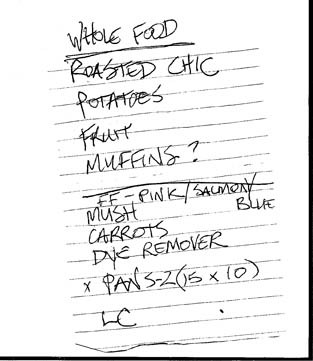 WHOLE FOOD
ROASTED CHIC
POTATOES
FRUIT
MUFFINS?
FF-PINK/SALMON/
BLUE
MUSH
CARROTS
DYE REMOVER
x PANS-2(15 x 10)
LC